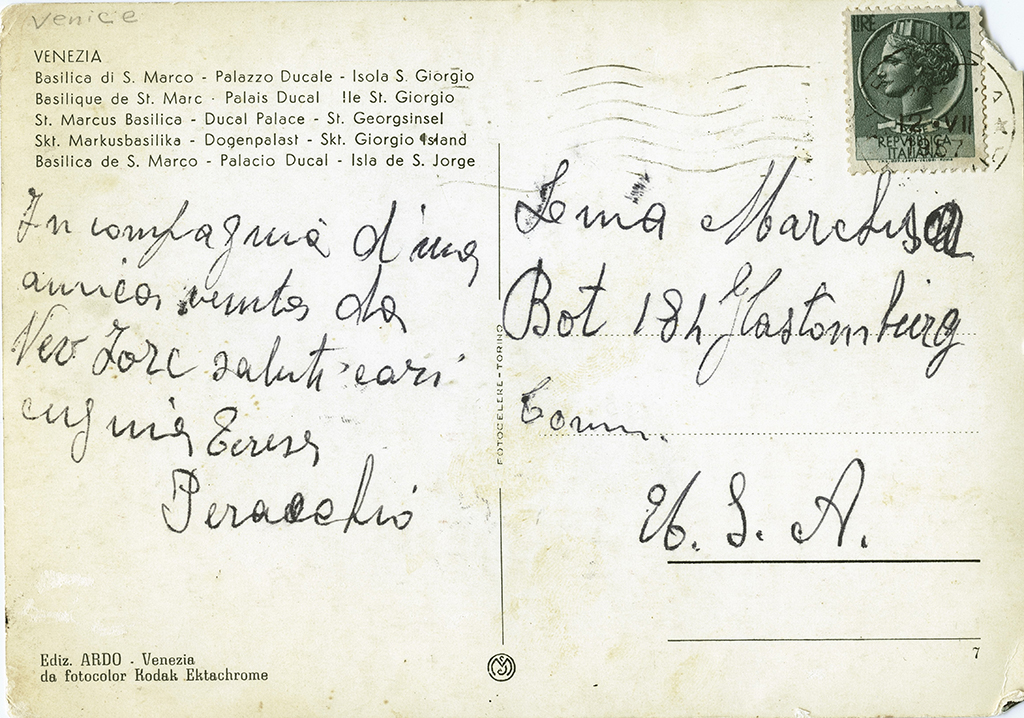 Venice
VENEZIA
Basilica di S. Marco - Palazzo Ducale - Isola S. Giorgio
Basilique de St. Marc - Palais Ducal Ile St. Giorgio
St. Marcus Basilica - Ducal Palace - St. Georgsinsel
Skt. Markusbasilika - Dogenpalast - Skt. Giorgio Island
Basilica de S. Marco - Palacio Ducal - Isla de S. Jorge
In compagnia d'una
amica venuta da
Nev Jorc saluti cari
cugina Teresa
Peracchio
LIRE 12
12 VII
REPVBBLICA
ITALIANA
Lena Marchisa
Bot 184 Glastomburg
Conn.
U. S. A.
FOTOCELERE - TORINO
Ediz. ARDO - Venezia
da fotocolor Kodak Ektachrome
7